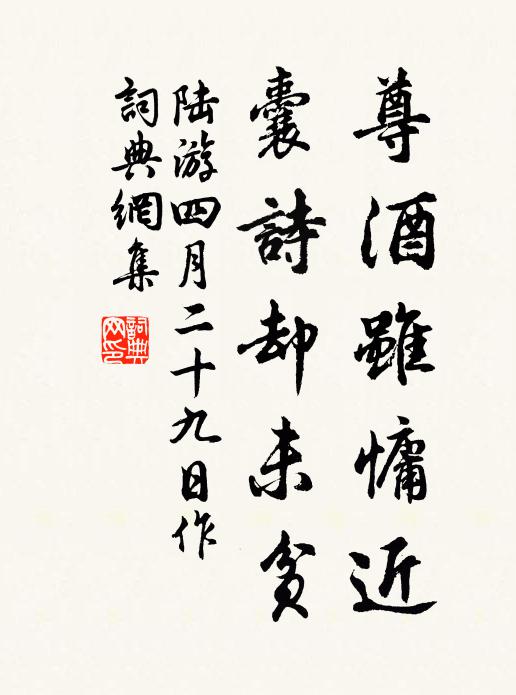 尊酒雖慵近
囊詩却未貧
陸游四月二十九日作
詞典網集
詞典网印